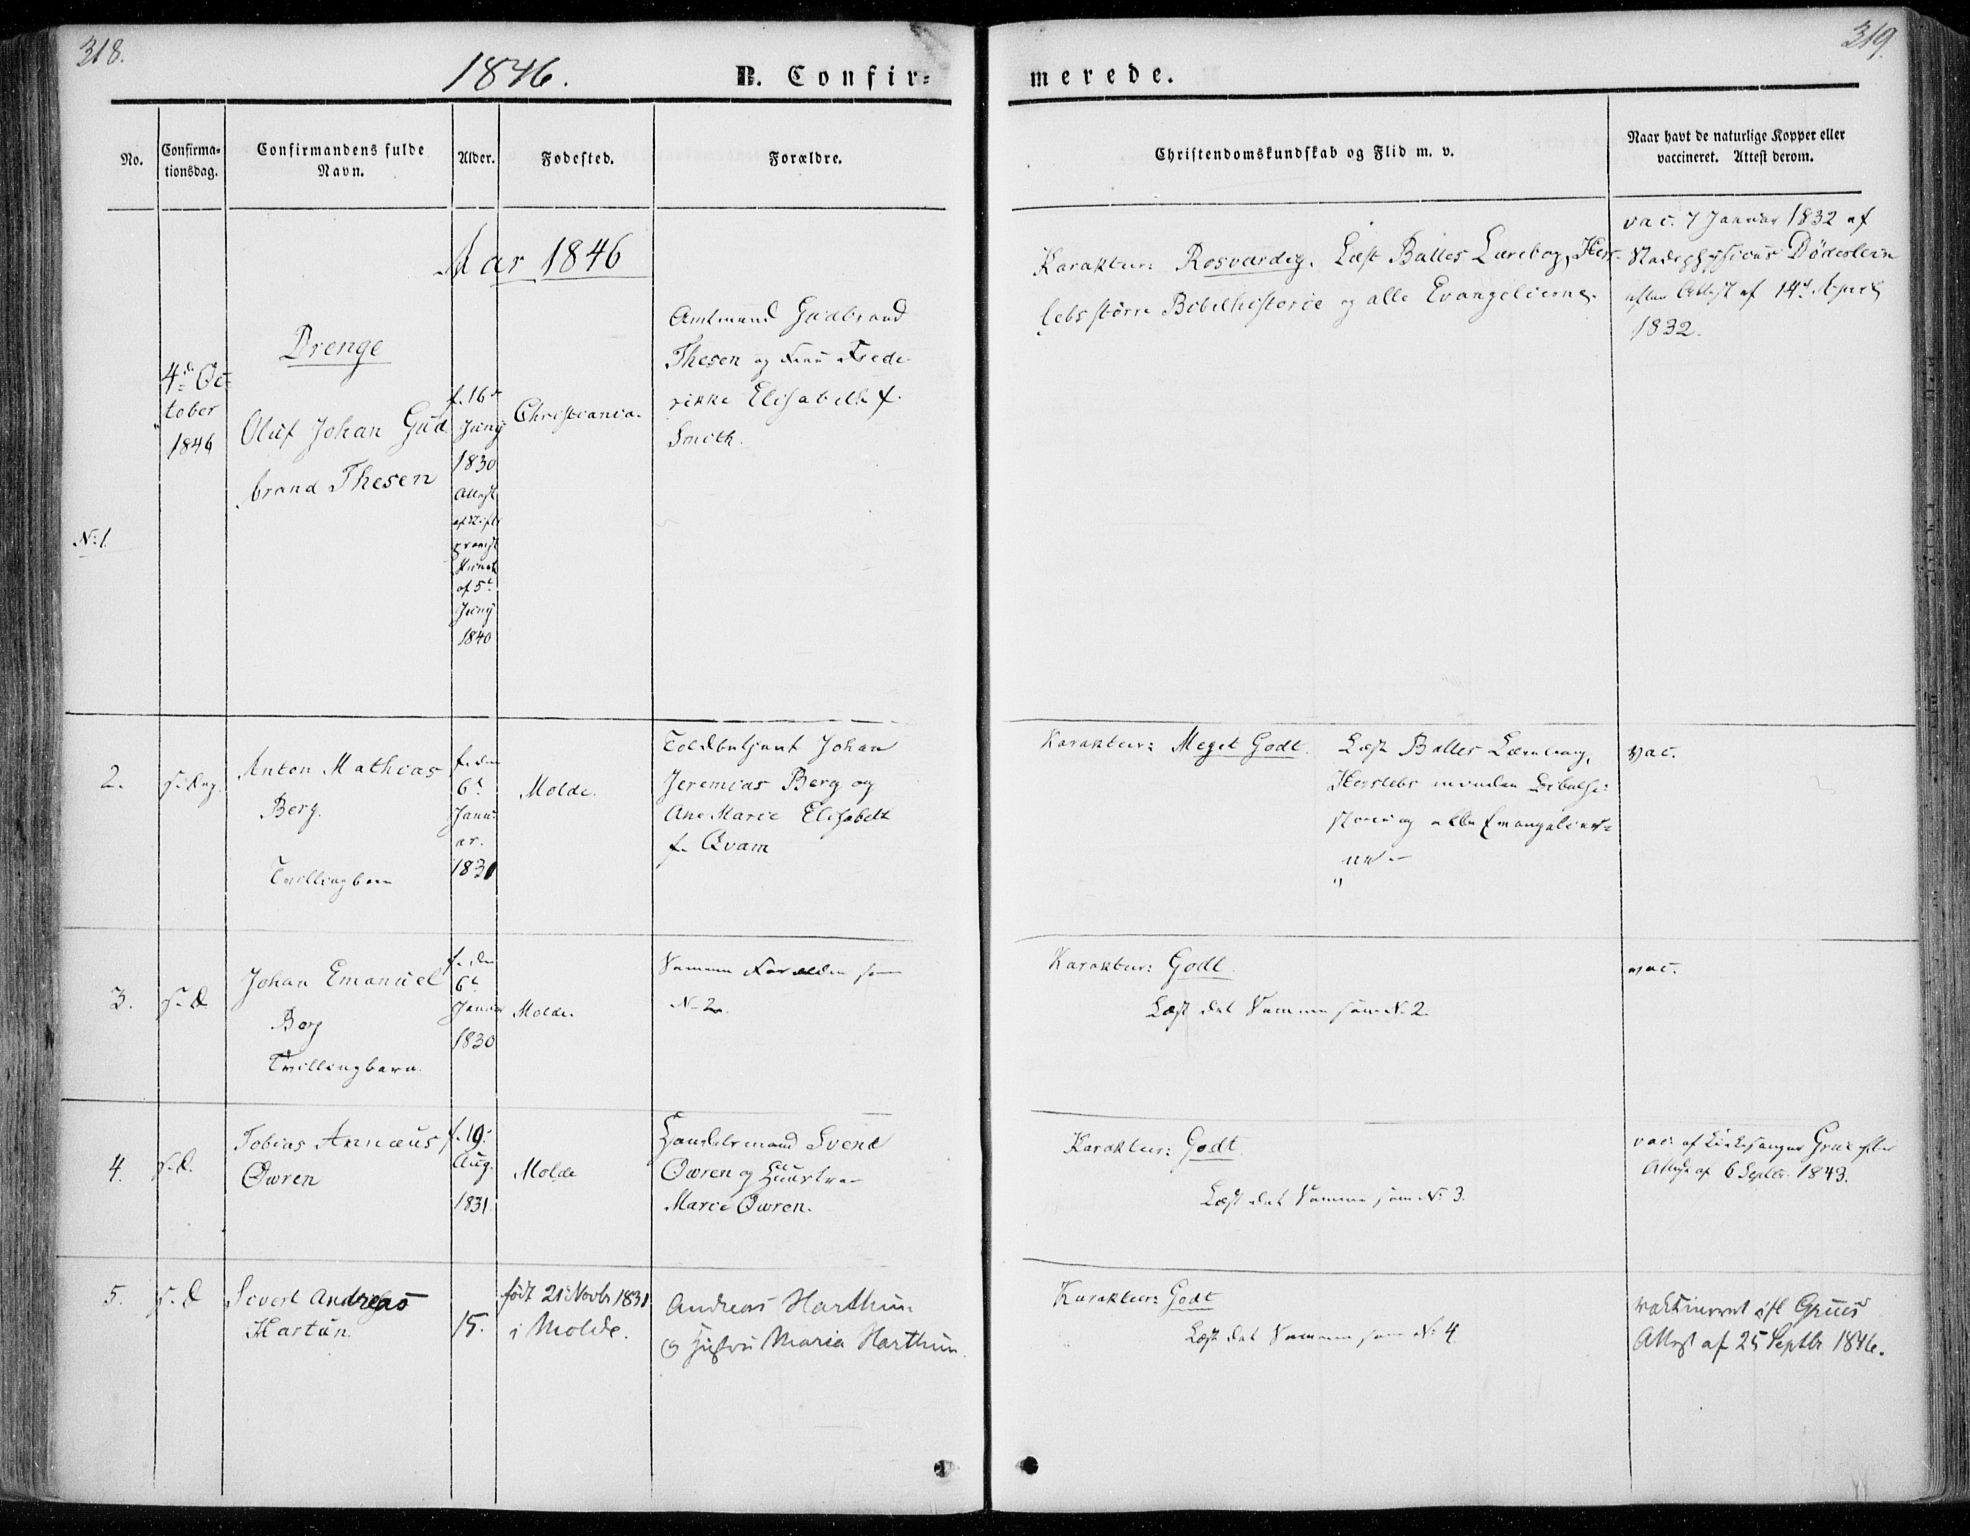 318.
319.
1846.
B. Confir=
merede.
No.
Confirma-
tionsdag.
Confirmandens fulde
Navn.
Alder.
Fødested.
Forældre.
Christendomskundskab og Flid m. v.
Naar havt de naturlige Kopper eller
vaccineret. Attest derom.
Aar 1846
Drenge
No 1.
4de Oc=
tober
1846
Oluf Johan Gud
brand Thesen
f. 16de
Junij
1830
Attest
af
af 5te
Junij
1840
Christiania.
Amtmand Gudbrand
Thesen og Frue Frede
rikke Elisabeth f.
Smith.
Karakteer: Rosværdig. Læst Balles Lærebog, Hers
lebs större Bibelhistorie og alle Evangelierne.
vac. 7 Januar 1832 af
Stadsphysicus Döderlein
efter Attest af 14de April
1832.
2.
s. Dag.
Anton Mathias
Berg.
Tvillingbarn
f. den
6te
Janu=
ar.
1831
Molde.
Toldbetjent Johan
Jeremias Berg og
Ane Marie Elisabeth
f. Qvam
Karakteer: Meget Godt.
Læst Balles Lærebog,
Herslebs mindre Bibelhi=
storie og alle Evangelier=
ne.
vac.
3.
s. D.
Johan Emanuel
Berg
Tvillingbarn.
f. den
6te
Januar
1830
Molde.
Samme Forældre som
No 2.
Karakteer: Godt.
Læst det Samme som No 2.
vac.
4.
s. D.
Tobias Annæus
Owren
f. 19.
Aug.
1831.
Molde
Handelsmand Svend
Owren og Huustru
Marie Owren.
Karakteer: Godt.
Læst det Samme som No 3.
vac. af Kirkesanger Grue efter
Attest af 6 Septbr. 1843.
5.
s. D
Sivert Andreas
Hartun.
15.
födt 21 Novbr 1831
i Molde.
Andreas Harthun
og Hustru Maria Harthun.
Karakteer: Godt
Læst det Samme som No 4.
vaktineret eft Grues
Attest af 25 Septbr 1846.